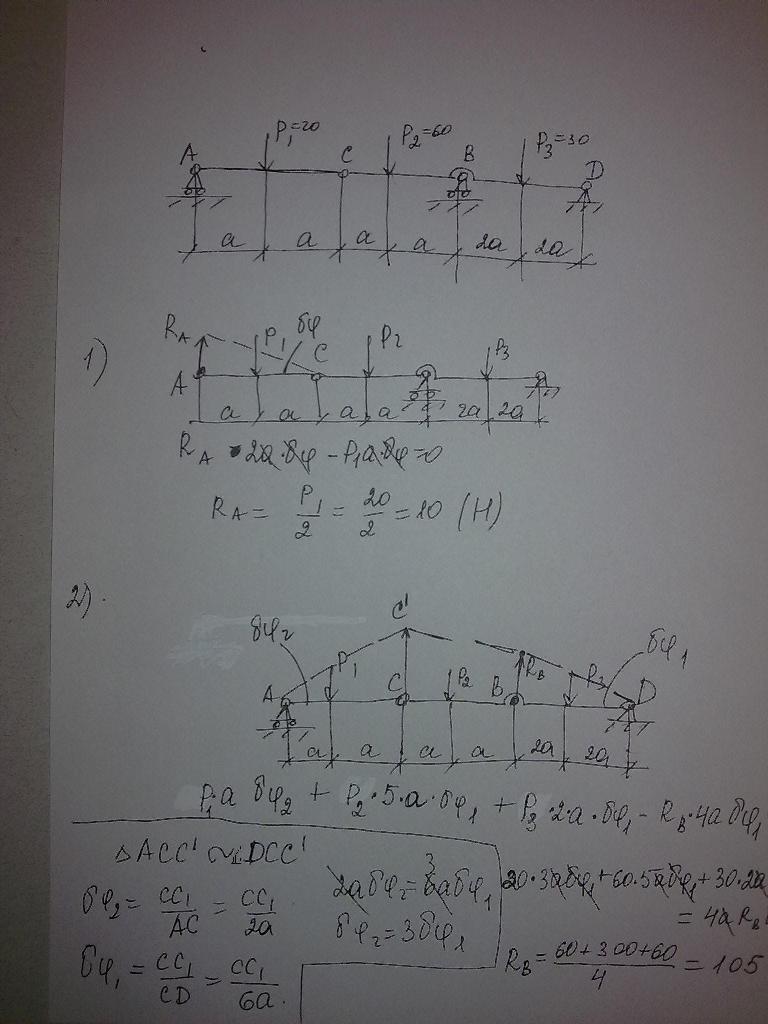 P₁=20
P₂=60
P₃=30
A C B D
a a a a 2a 2a
1)
R_A P₁ δφ C P₂ P₃
A
a a a a 2a 2a
R_A · 2a·δφ - P₁a·δφ=0
R_A = P₁/2 = 20/2 = 10 (H)
2).
C'
δφ₂ P₁ C P₂ B R_B P₃ D δφ₁
A
a a a a 2a 2a
P₁·a δφ₂ + P₂·5·a·δφ₁ + P₃·2a·δφ₁ - R_B·4aδφ₁
ΔACC' ~ ΔDCC'
δφ₂ = CC₁/AC = CC₁/2a
δφ₁ = CC₁/CD = CC₁/6a.
2aδφ₂ = 6aδφ₁ 3
δφ₂ = 3δφ₁
20·3aδφ₁+60·5aδφ₁+30·2a
= 4a R_B
R_B = (60+300+60)/4 = 105